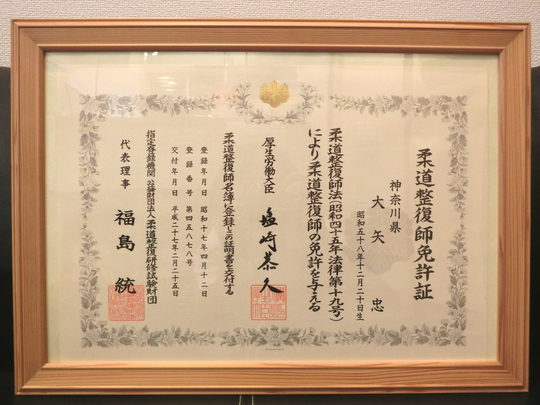 柔道整復師免許証
神奈川県
大矢 忠
昭和五十八年十二月二十日生
柔道整復師法(昭和四十五年法律第十九号)
により柔道整復師の免許を与える
厚生労働大臣 塩崎恭久
柔道整復師名簿に登録しこの証明書を交付する
登録年月日 昭和十七年四月十二日
登録番号 第四五八七八号
交付年月日 平成二十七年二月二十五日
指定登録機関 公益財団法人 柔道整復研修試験財団
代表理事 福島統